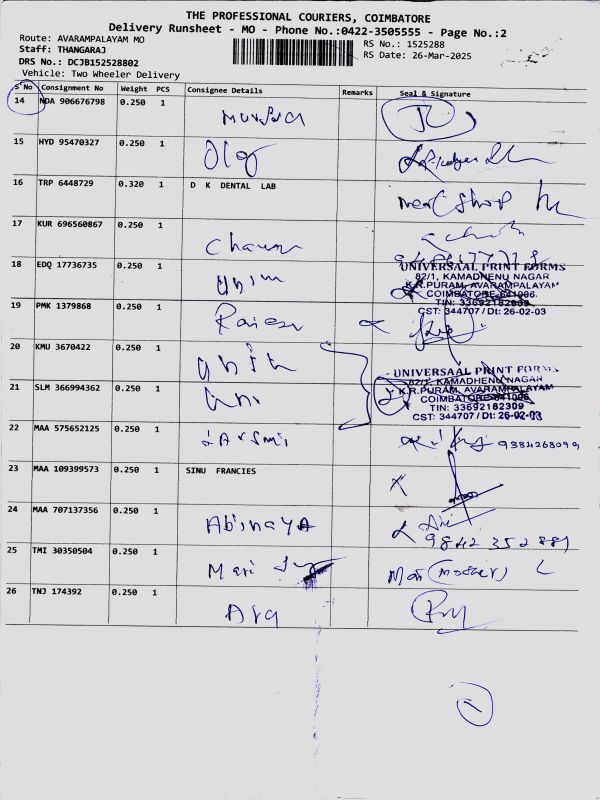 THE PROFESSIONAL COURIERS, COIMBATORE
Delivery Runsheet - MO - Phone No.:0422-3505555 - Page No.:2
Route: AVARAMPALAYAM MO
RS No.: 1525288
Staff: THANGARAJ
RS Date: 26-Mar-2025
DRS No.: DCJB152528802
Vehicle: Two Wheeler Delivery
S'No Consignment No Weight PCS Consignee Details Remarks Seal & Signature
14 NDA 906676798 0.250 1
15 HYD 95470327 0.250 1
16 TRP 6448729 0.320 1 D K DENTAL LAB
17 KUR 696560867 0.250 1
18 EDQ 17736735 0.250 1
UNIVERSAAL PRINT FORMS
82/1, KAMADHENU NAGAR
K.R.PURAM, AVARAMPALAYAM
COIMBATORE-641006.
TIN: 33692182309
CST: 344707 / Dt: 26-02-03
19 PMK 1379868 0.250 1
20 KMU 3670422 0.250 1
UNIVERSAAL PRINT FORMS
82/1, KAMADHENU NAGAR
K.R.PURAM, AVARAMPALAYAM
COIMBATORE-641006
TIN: 33692182309
CST: 344707 / Dt: 26-02-03
21 SLM 366994362 0.250 1
22 MAA 575652125 0.250 1 9384268099
23 MAA 109399573 0.250 1 SINU FRANCIES
24 MAA 707137356 0.250 1 Abinaya
9842352889
25 TMI 30350504 0.250 1 Mari
26 TNJ 174392 0.250 1